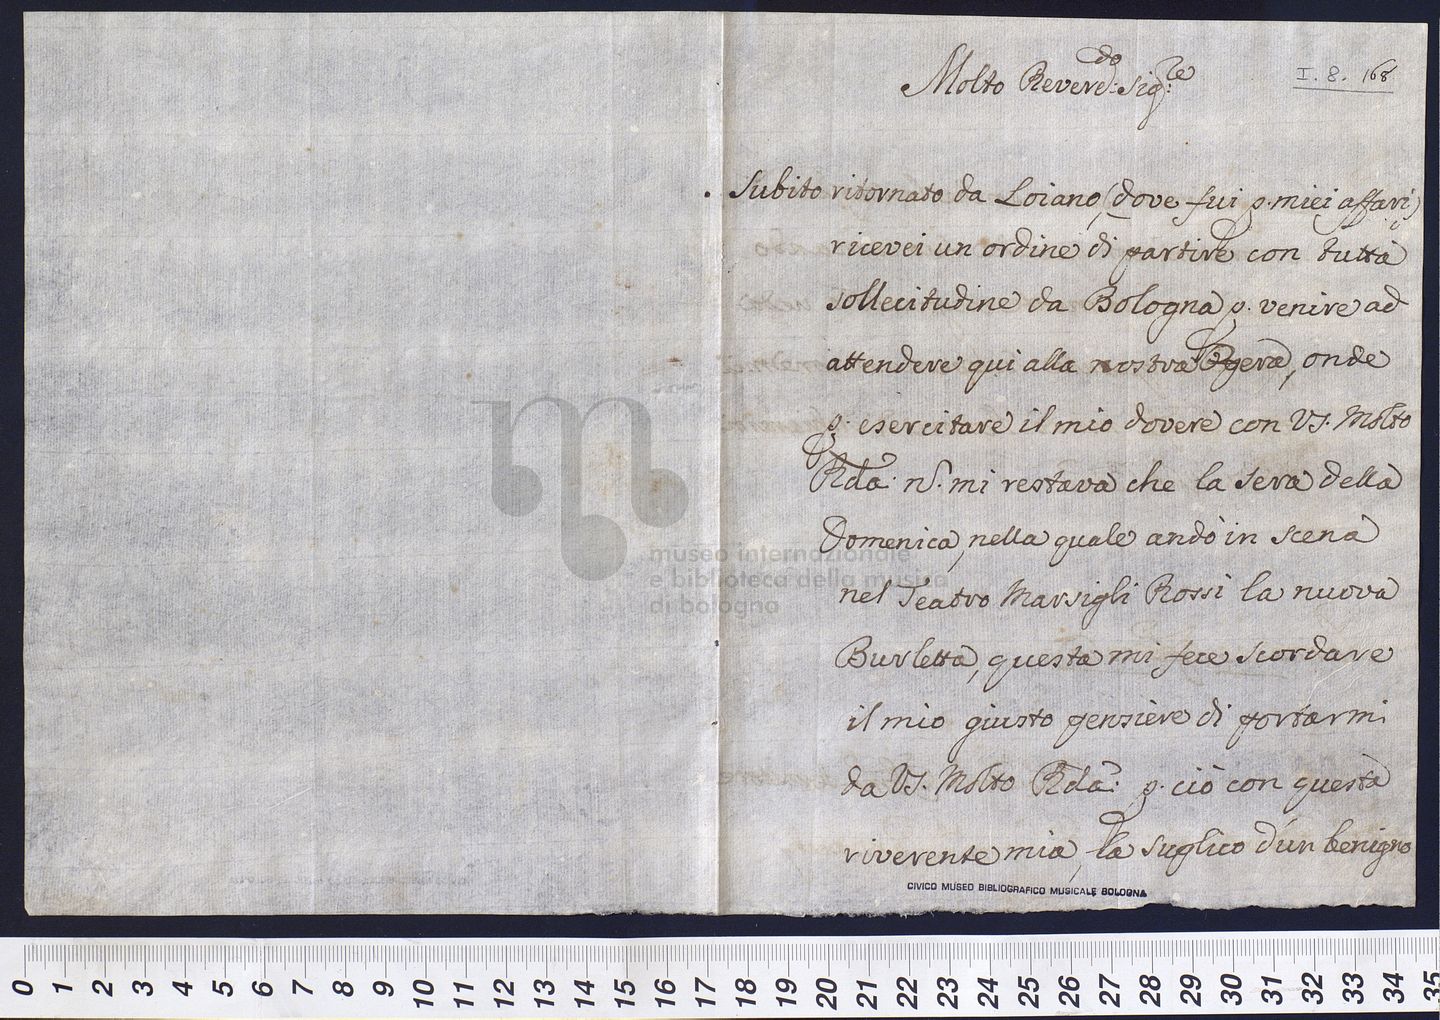 I. 8. 168
Molto Revere:do Sig:re
Subito ritornato da Loiano, (dove fui p. miei affari)
ricevei un ordine di partire con tutta
sollecitudine da Bologna p. venire ad
attendere qui alla nostra Opera, onde
p. esercitare il mio dovere con VS. Molto
Rda. n. mi restava che la sera della
Domenica, nella quale andò in scena
nel Teatro Marsigli Rossi la nuova
Burletta, questa mi fece scordare
il mio giusto pensiere di portarmi
da VS. Molto Rda: p. ciò con questa
riverente mia, la suplico d'un benigno
CIVICO MUSEO BIBLIOGRAFICO MUSICALE BOLOGNA
museo internazionale
e biblioteca della musica
di bologna
0 1 2 3 4 5 6 7 8 9 10 11 12 13 14 15 16 17 18 19 20 21 22 23 24 25 26 27 28 29 30 31 32 33 34 35